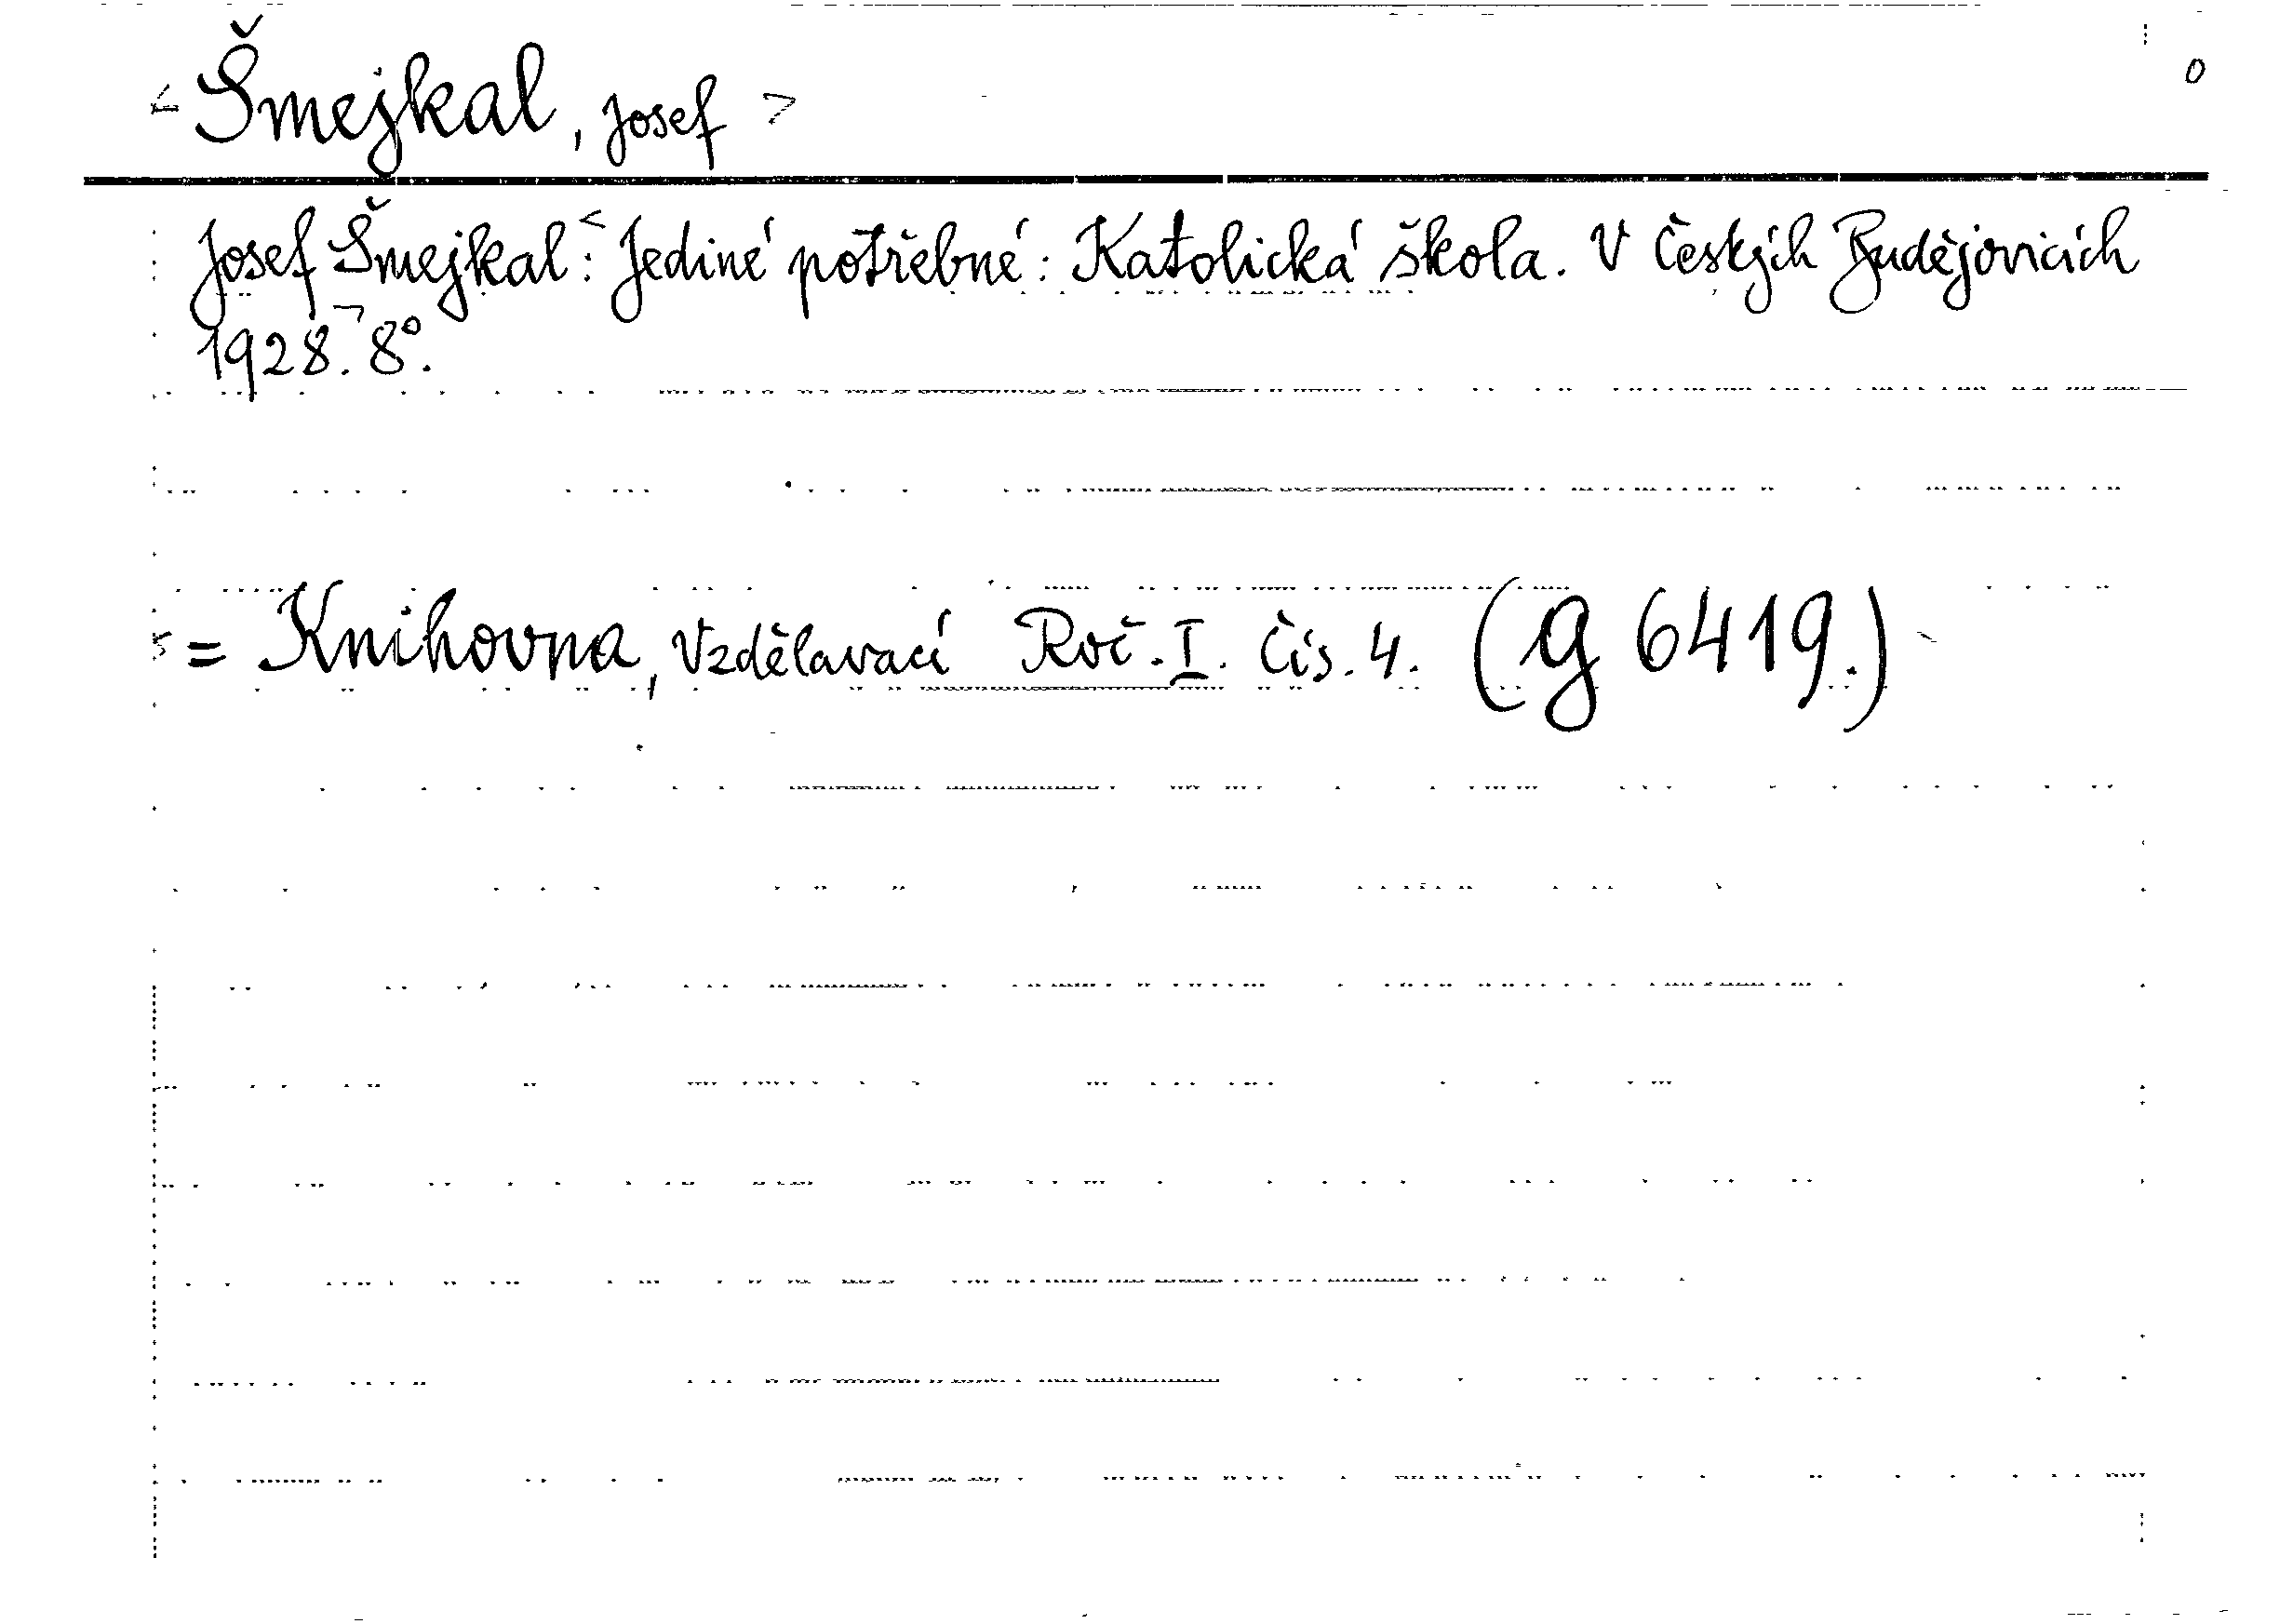 Šmejkal, Josef
0
Josef Šmejkal: Jediné potřebné: Katolická škola. V Českých Budějovicích
1928. 8°.
= Knihovna, Vzdělavací Roč. I. Čís. 4. (g 6419.)